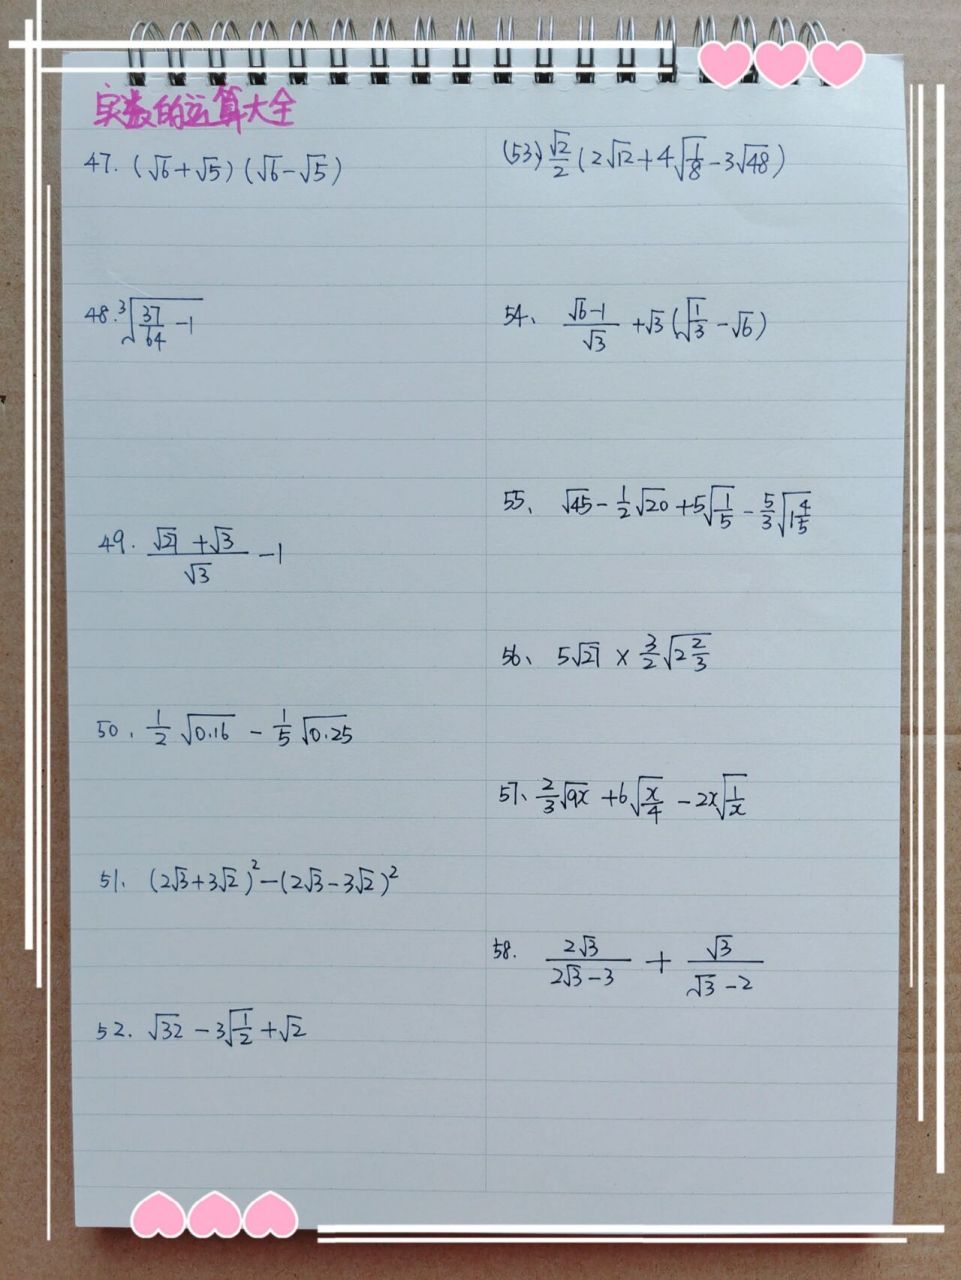 实数的运算大全
47. (√6+√5)(√6-√5)
48. ³√(37/64 - 1)
49. (√27 + √3)/√3 - 1
50. 1/2 √0.16 - 1/5 √0.25
51. (2√3+3√2)² - (2√3-3√2)²
52. √32 - 3√(1/2) + √2
(53) √2/2 (2√12 + 4√(1/8) - 3√48)
54、 (√6-1)/√3 + √3(√(1/3) - √6)
55、 √45 - 1/2 √20 + 5√(1/5) - 5/3 √(1 4/5)
56、 5√27 × 3/2 √(2 2/3)
57、 2/3 √9x + 6√(x/4) - 2x√(1/x)
58. 2√3/(2√3-3) + √3/(√3-2)